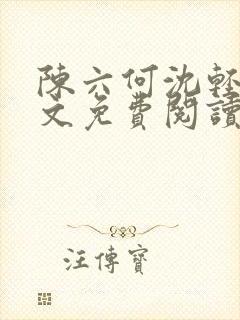 陳六何沈輕
文免費閱讀
汪傳寶